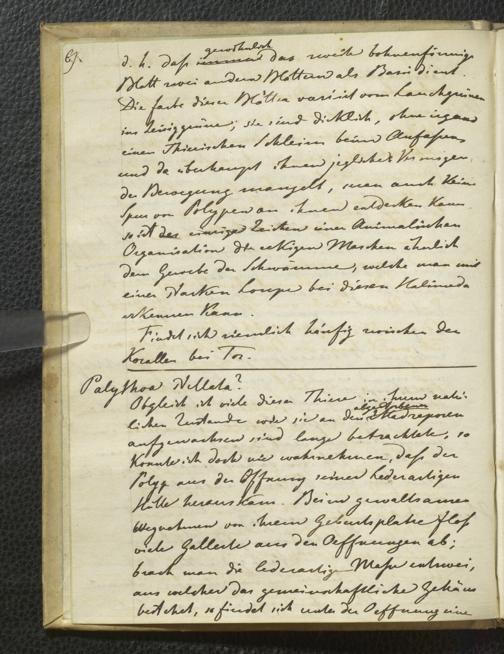 69.
gewöhnlich
d. h. daß immer das zweite bohnenförmige
Blatt zwei andern Blättern als Basis dient.
Die farbe dieser Blätter variirt vom Lauchgrünen
ins Zeisiggrüne; sie sind dicklich, ohne irgend
einen Thierischen Schleim beim Anfassen
und da überhaupt ihnen jegliches Vermögen
der Bewegung mangelt, man auch kein
Spur von Polypen an ihnen entdecken kann
so ist das einzige Zeichen einer Animalischen
Organisation die eckigen Maschen ähnlich
dem Gewebe der Schwämme, welche man mit
einer starken Loupe bei diesen Halimeda
erkennen kann.
Findet sich ziemlich häufig zwischen den
Korallen bei Tor.
Palythoa stellata?
Obgleich ich viele dieser Thiere in ihrem natür
lichen Zustande wie sie an den Madreporen
abgestorbenen
aufgewachsen sind lange betrachtete, so
konnte ich doch nie wahrnehmen, daß der
Polyp aus der Öffnung seiner lederartigen
Hülle herauskam. Beim gewaltsamen
Wegnehmen von ihrem Geburtsplatze floß
viele Gallerte aus den Oeffnungen ab;
brach man die lederartige Masse entzwei,
aus welcher das gemeinschaftliche Gehäus
bestehet, so findet sich unter der Oeffnung eine